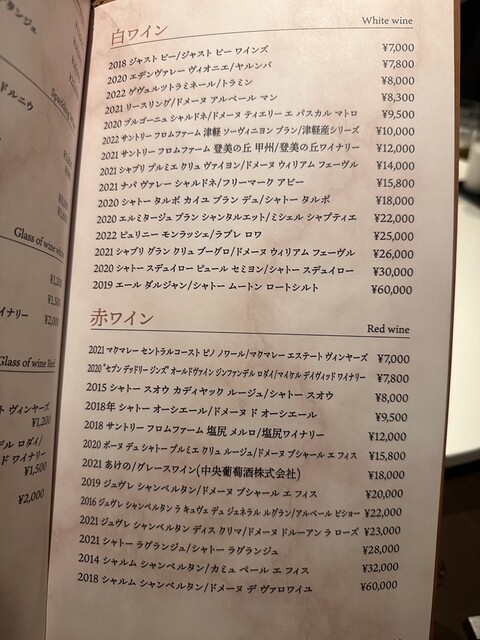 タンジュ
Sparkling
ドルニウ
Glass of wine white
¥1,200
¥1,500
イナリー
¥2,000
Glass of wine Red
ト ヴィンヤーズ
¥1,200
デル ロダイ/
ド ワイナリー
¥1,500
¥2,000
白ワイン White wine
2018 ジャスト ピー/ジャスト ピー ワインズ ¥7,000
2020 エデンヴァレー ヴィオニエ/ヤルンバ ¥7,800
2022 ゲヴュルツトラミネール/トラミン ¥8,000
2021 リースリング/ドメーヌ アルベール マン ¥8,300
2020 ブルゴーニュ シャルドネ/ドメーヌ ティエリー エ パスカル マトロ ¥9,500
2022 サントリー フロムファーム 津軽 ソーヴィニヨン ブラン/津軽産シリーズ ¥10,000
2021 サントリー フロムファーム 登美の丘 甲州/登美の丘ワイナリー ¥12,000
2021 シャブリ プルミエ クリュ ヴァイヨン/ドメーヌ ウィリアム フェーヴル ¥14,000
2021 ナパ ヴァレー シャルドネ/フリーマーク アビー ¥15,800
2020 シャトー タルボ カイユ ブラン デュ/シャトー タルボ ¥18,000
2020 エルミタージュ ブラン シャンタルエット/ミシェル シャプティエ ¥22,000
2022 ピュリニー モンラッシェ/ラブレ ロワ ¥25,000
2021 シャブリ グラン クリュ ブーグロ/ドメーヌ ウィリアム フェーヴル ¥26,000
2020 シャトー スデュイロー ピュール セミヨン/シャトー スデュイロー ¥30,000
2019 エール ダルジャン/シャトー ムートン ロートシルト ¥60,000
赤ワイン Red wine
2021 マクマレー セントラルコースト ピノ ノワール/マクマレー エステート ヴィンヤーズ ¥7,000
2020 "セブン デッドリー ジンズ" オールドヴァイン ジンファンデル ロダイ/マイケル デイヴィッド ワイナリー ¥7,800
2015 シャトー スオウ カディヤック ルージュ/シャトー スオウ ¥8,000
2018年 シャトー オーシエール/ドメーヌ ド オーシエール ¥9,500
2018 サントリー フロムファーム 塩尻 メルロ/塩尻ワイナリー ¥12,000
2020 ボーヌ デュ シャトー プルミエ クリュ ルージュ/ドメーヌ ブシャール エ フィス ¥15,800
2021 あけの/グレースワイン(中央葡萄酒株式会社) ¥18,000
2019 ジュヴレ シャンベルタン/ドメーヌ ブシャール エ フィス ¥20,000
2016 ジュヴレ シャンベルタン ラ キュヴェ デュ ジェネラル ルグラン/アルベール ビショー ¥22,000
2021 ジュヴレ シャンベルタン ディス クリマ/ドメーヌ ドルーアン ラ ローズ ¥23,000
2021 シャトー ラグランジュ/シャトー ラグランジュ ¥28,000
2014 シャルム シャンベルタン/カミュ ペール エ フィス ¥32,000
2018 シャルム シャンベルタン/ドメーヌ デ ヴァロワイユ ¥60,000